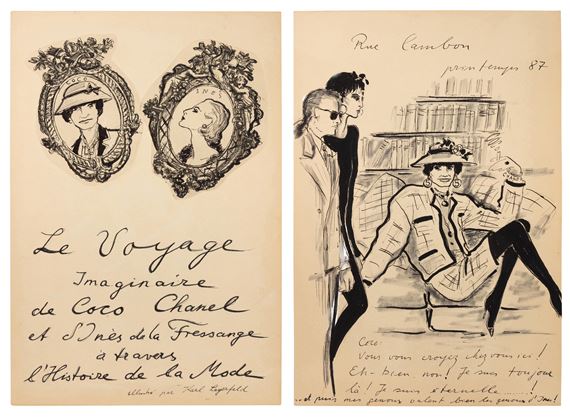 COCO
INES
Le Voyage
Imaginaire
de Coco Chanel
et d'Inès de la Fressange
à travers
l'Histoire de la Mode
illustré par Karl Lagerfeld
Rue Cambon
printemps 87
Coco:
Vous vous croyez chez vous ici!
Eh bien, non! Je suis toujours
là! Je suis éternelle ......!
..et puis mes genoux valent bien les genoux d'Ines!